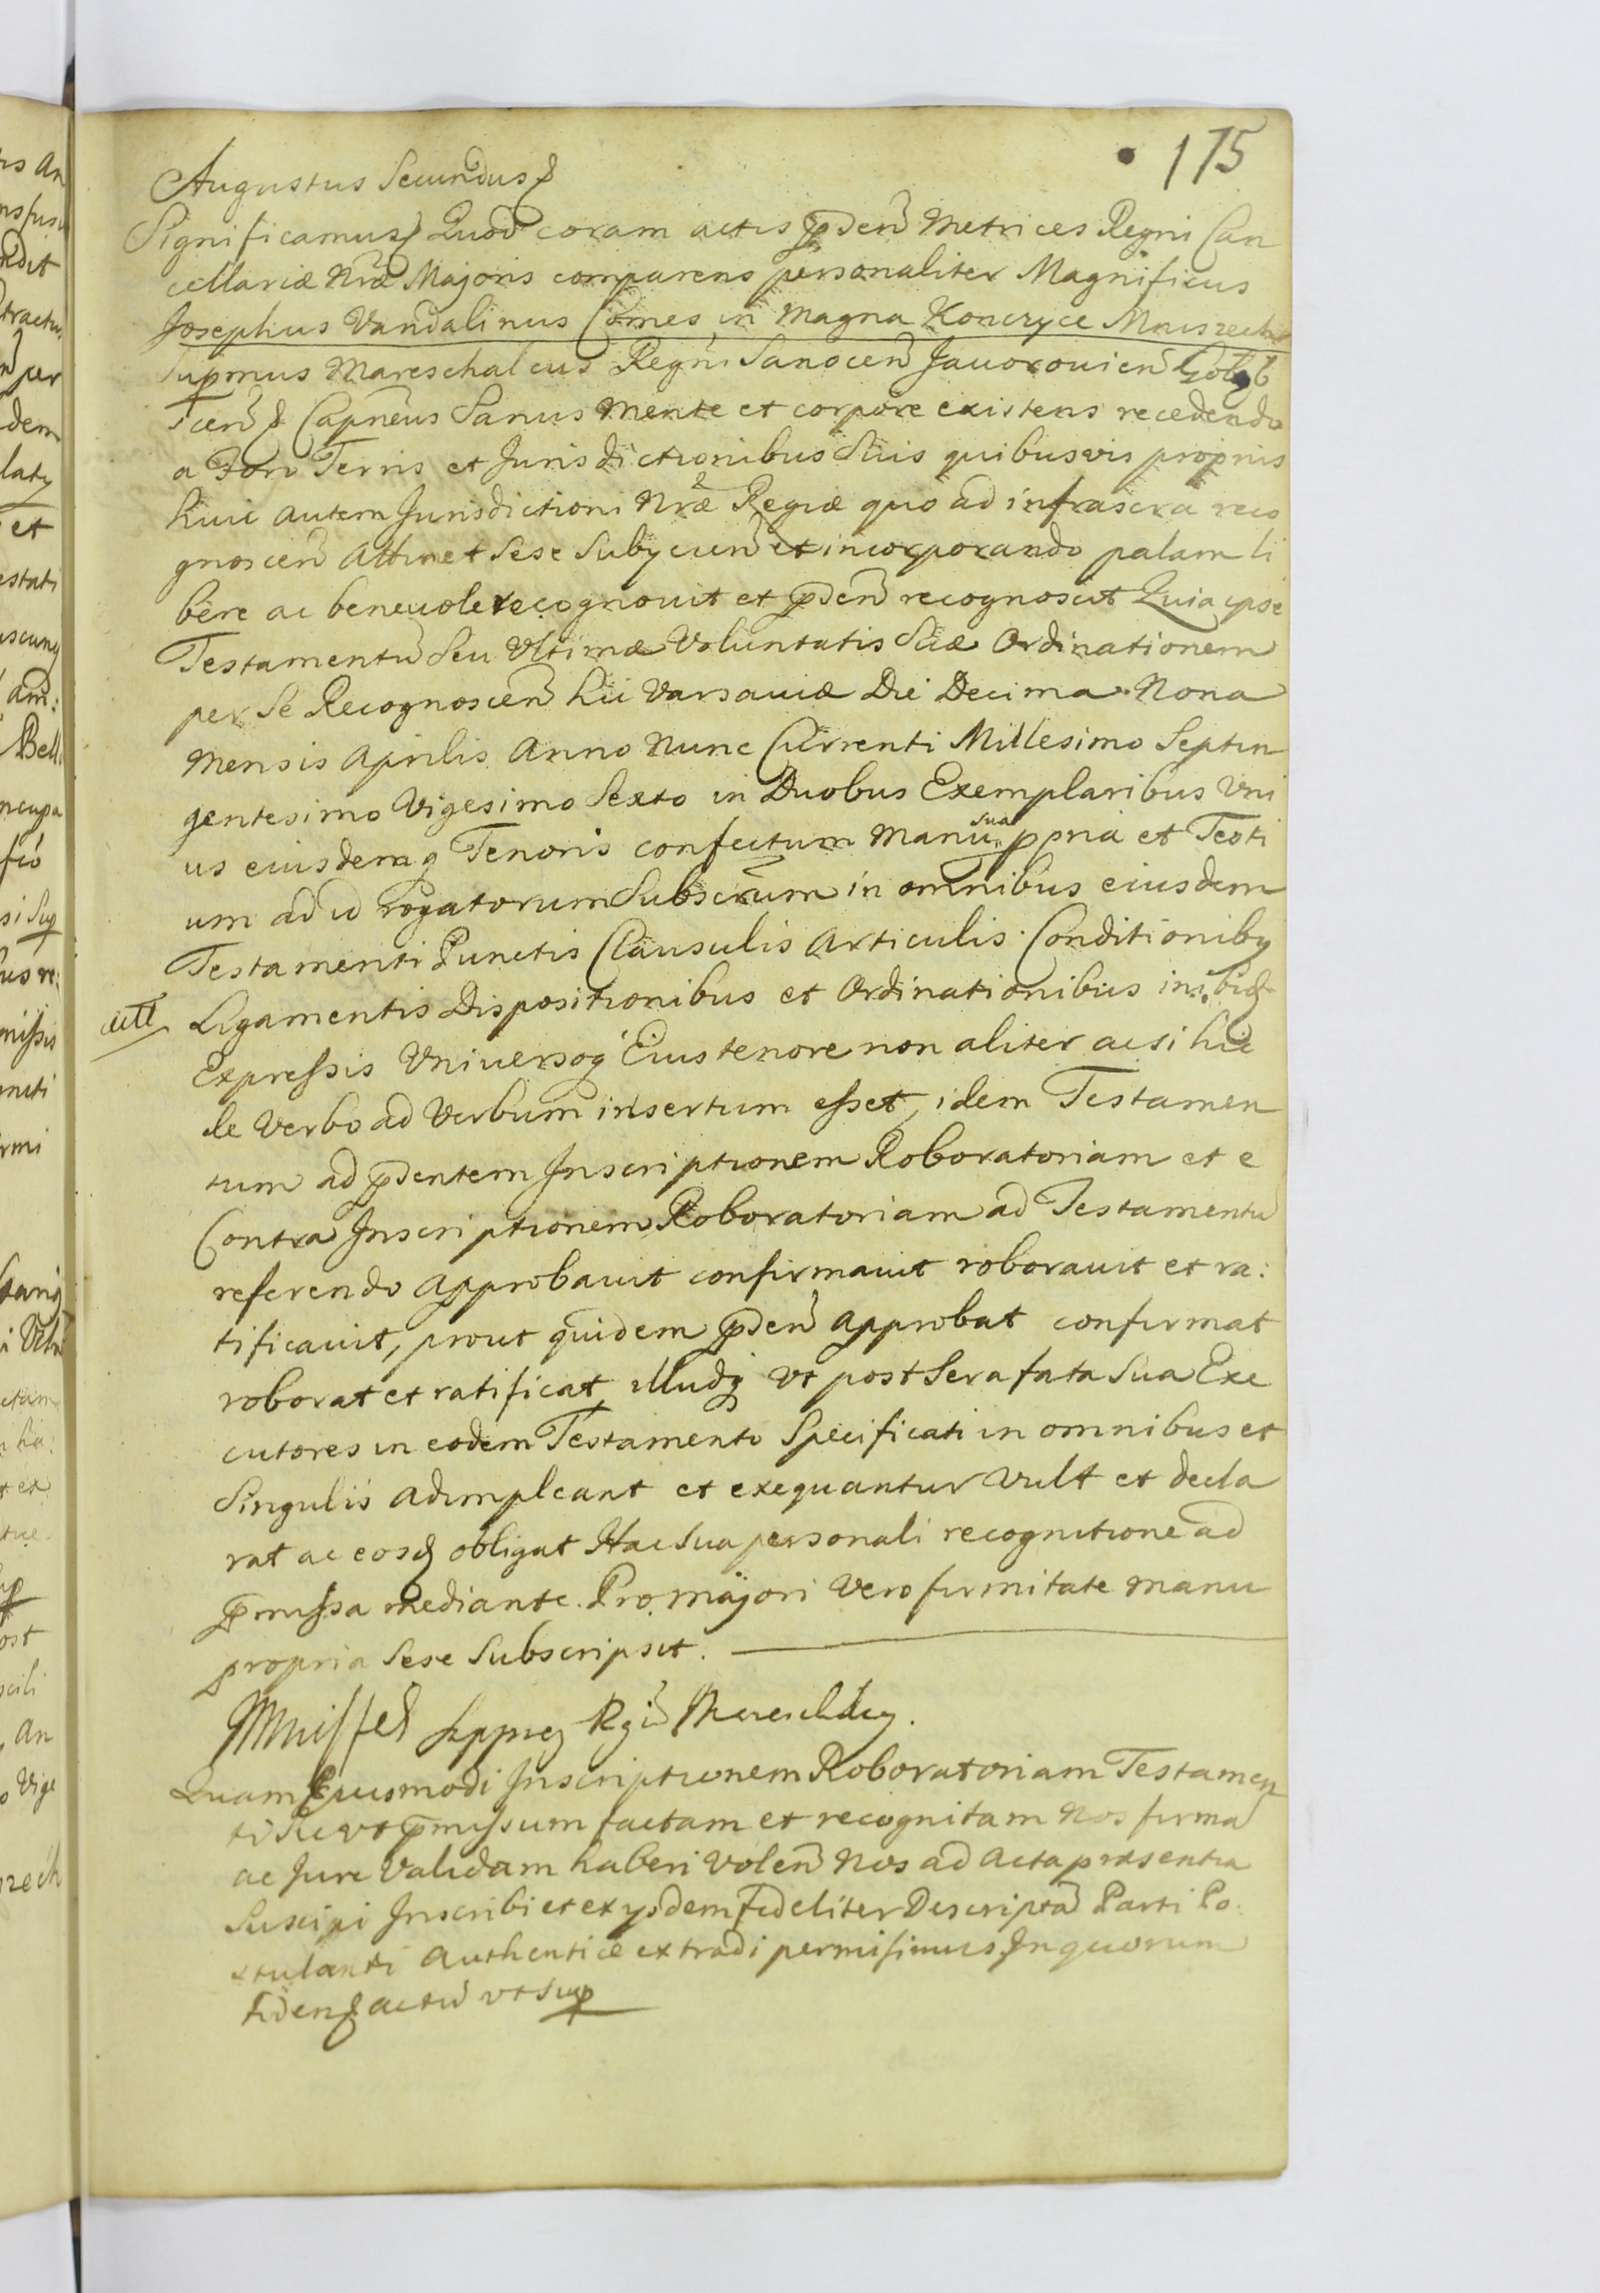 175
Augustus Secundus &
Significamus & Quod coram actis p̃ñden̄ Metrices Regni Can
cellariæ Nr̃æ Majoris comparens personaliter Magnificus
Josephus Vandalinus Comes in Magna Konczyce Mniszech
Supr̃mus Mareschalcus Regni Sanocen̄ Jauorouien̄ Golub
Tcen̄ & Capn̄eus Sanus mente et corpore existens recedendo
a Foro Terris et Jurisdictionibus Suis quibusvis proprijs
huic autem Jurisdictioni Nr̃æ Regiæ quo ad infrascr̃a reco
gnoscen̄ attinet Sese Subyicien̄ et incorporando palam li
bere ac beneuole recognouit et p̃den̄ recognoscit Quia ipse
Testamentū Seu Vltimæ Voluntatis Suæ Ordinationem
per Se Recognoscen̄ hic Varsauiæ Die Decima Nona
Mensis Aprilis Anno Nunc Currenti Millesimo Septin
gentesimo Vigesimo Sexto in Duobus Exemplaribus Vni
us eiusdemq Tenoris confectum Manu sua ppria et Testi
um ad id rogatorum Subscr̃um in omnibus eiusdem
Testamenti Punctis Clausulis Articulis Conditionibq
Ligamentis Dispositionibus et Ordinationibus inibiq
Expressis Vniversoq Eius tenore non aliter acsi hic
de Verbo ad Verbum insertum esset, idem Testamen
tum ad p̃dentem Inscriptionem Roboratoriam et e
Contra Inscriptionem Roboratoriam ad Testamentū
referendo approbavit confirmauit roborauit et ra:
tificauit, prout quidem p̃den̄ approbat confirmat
roborat et ratificat, illudq Vt post Sera fata Sua Exe
cutores in eodem Testamento Specificati in omnibus et
Singulis adimpleant et exequantur Vult et decla
rat ac eosq obligat Hac Sua personali recognitione ad
p̃missa mediante. Pro majori Vero firmitate manu
propria Sese Subscripsit.
Mniszech Suppreq Rgi
Quam Eiusmodi Inscriptionem Roboratoriam Testamen
ti Sic vt p̃missum factam et recognitam Nos firmā
ac Jure Validam haberi Volen̄ Nos ad Acta præsentia
Suscipi Inscribi et ex ysdem fideliter Descriptā Parti Po
stulanti Authentice extradi permisimus, In quorum
fidem & actū vt Sup